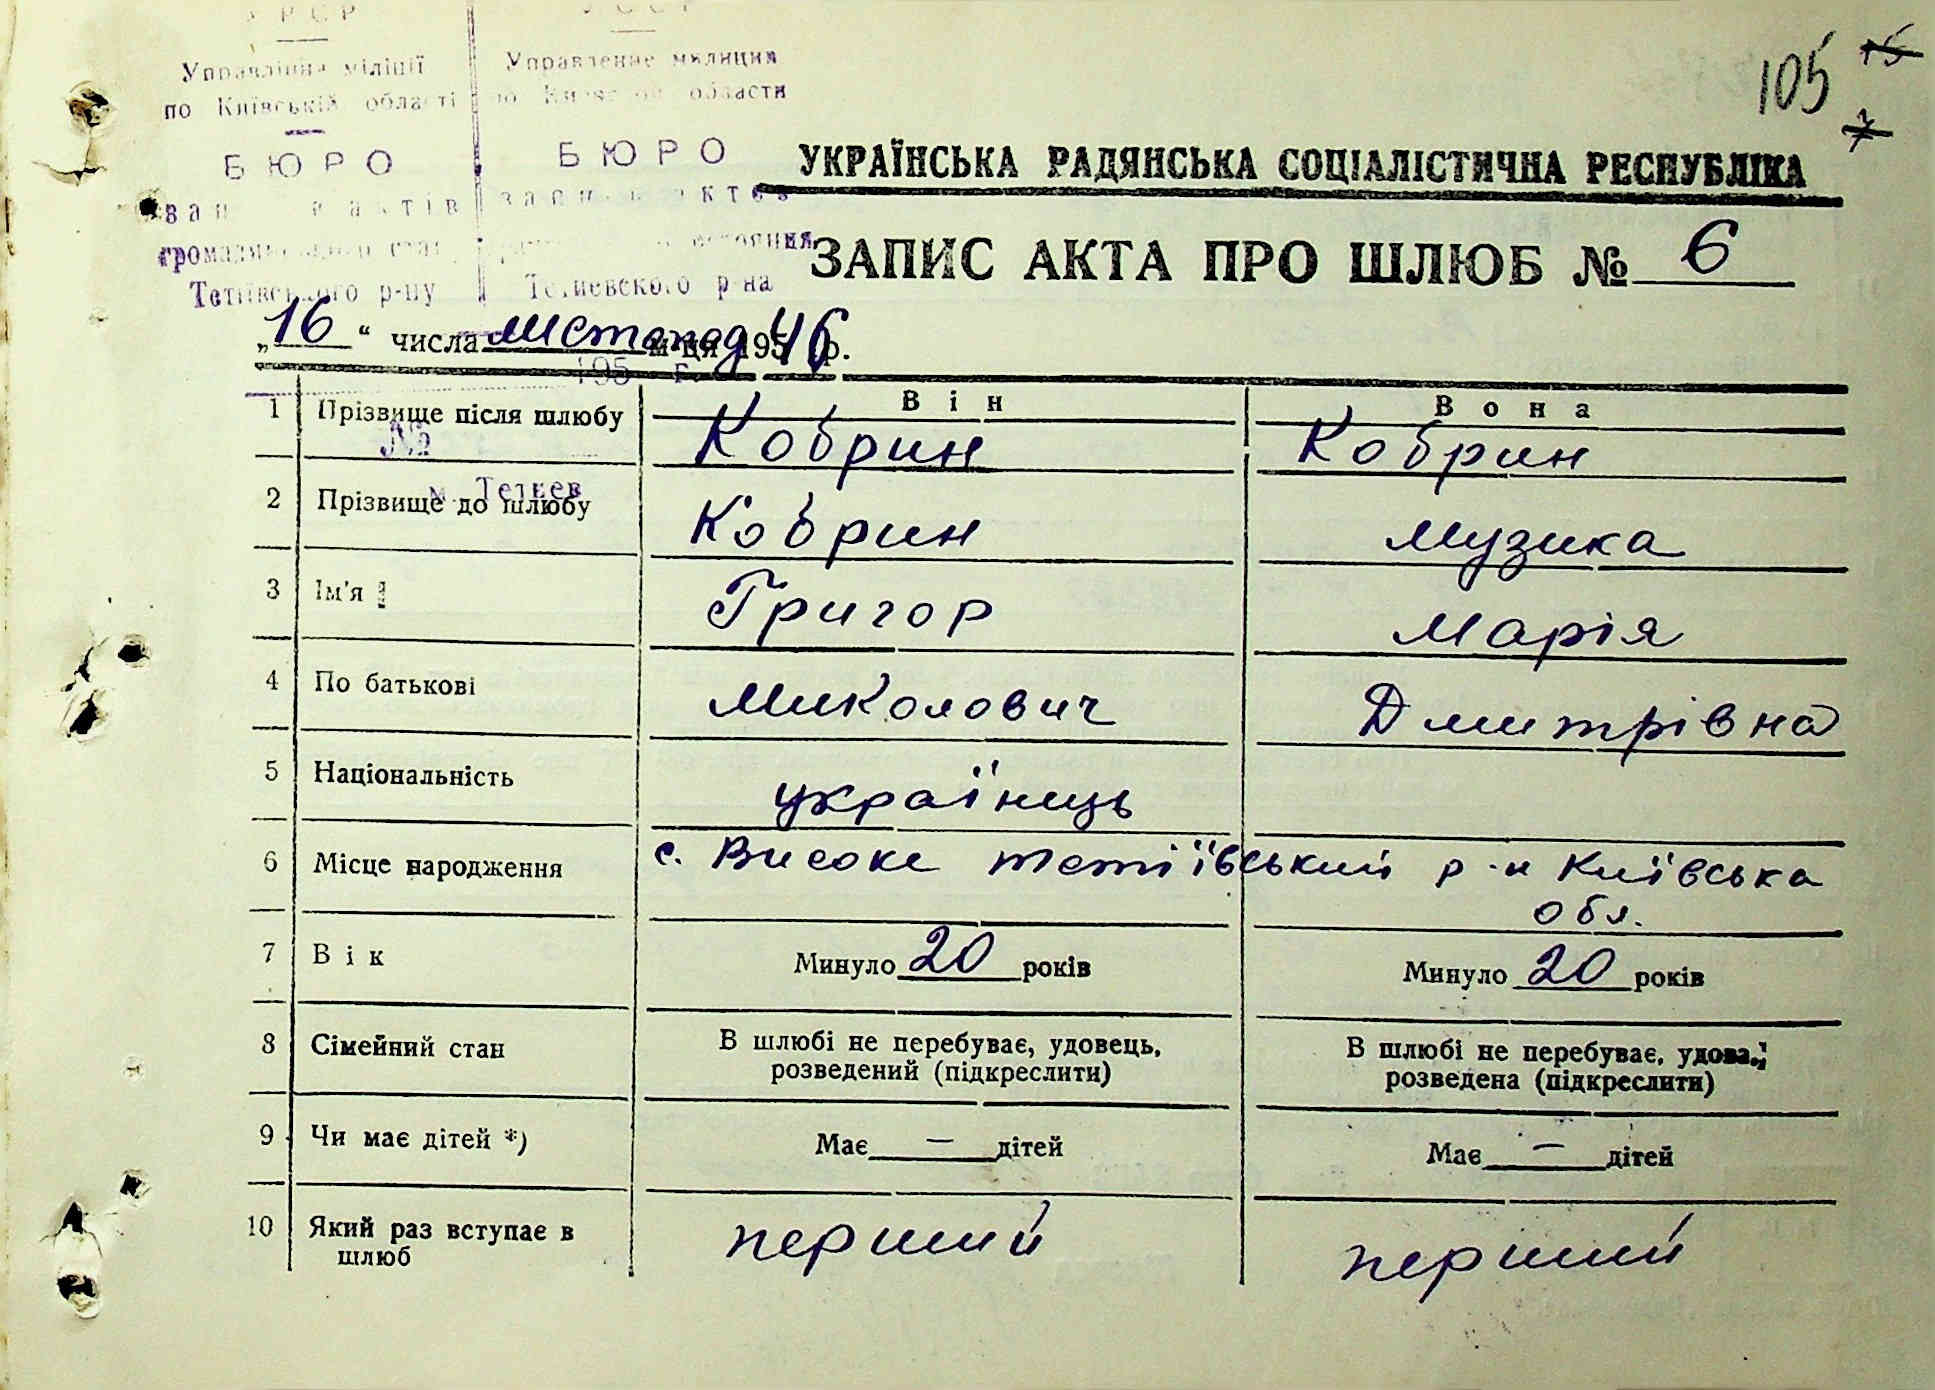 УРСР
УССР
Управління міліції
Управление милиции
по Київській області
по Киевской области
БЮРО
БЮРО
105 15
7
УКРАЇНСЬКА РАДЯНСЬКА СОЦІАЛІСТИЧНА РЕСПУБЛІКА
Тетіївського р-ну
Тетиевского р-на
ЗАПИС АКТА ПРО ШЛЮБ № 6
„16“ числа листопад м-ця 1946 р.
195 г.
Він
Вона
1 Прізвище після шлюбу Кобрин Кобрин
№
м. Тетиев
2 Прізвище до шлюбу Кобрин Музика
3 Ім'я Григор Марія
4 По батькові Миколович Дмитрівна
5 Національність українць
6 Місце народження с. Високе тетіївський р-н Київська
обл.
7 Вік Минуло 20 років Минуло 20 років
8 Сімейний стан В шлюбі не перебуває, удовець, В шлюбі не перебуває, удова,
розведений (підкреслити) розведена (підкреслити)
9 Чи має дітей *) Має — дітей Має — дітей
10 Який раз вступає в перший перший
шлюб